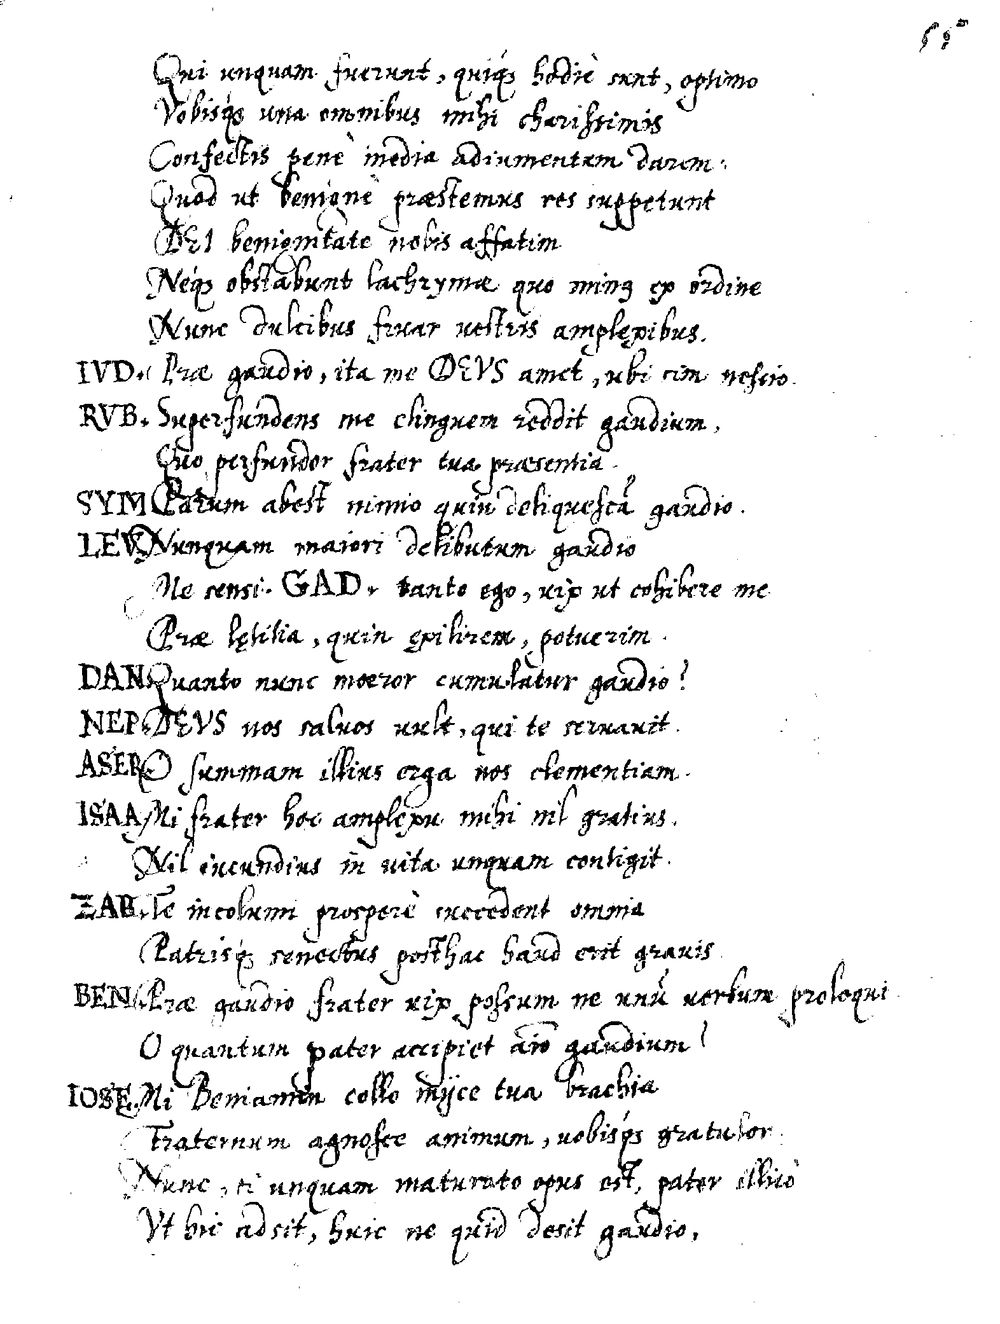 Qui unquam fuerunt, quiq́s hodiè sunt, optimo
Vobisq́s una omnibus mihi charissimis
Confectis penè inedia adiumentum darem.
Quod ut benignè præstemus res suppetunt
DEI benignitate nobis affatim
Neq́s obstabunt lachrymæ quo minꝰ ex ordine
Nunc dulcibus fruar vestris amplexibus.
IVD. Præ gaudio, ita me DEVS amet, ubi sim nescio.
RVB. Superfundens me elinguem reddit gaudium,
Quo perfundor frater tua præsentia.
SYM Parum abest nimio quin deliquescā gaudio.
LEV. Nunquam maiori delibutum gaudio
Me sensi. GAD. tanto ego, vix ut cohibere me
Præ lętitia, quin exilirem, potuerim.
DAN Quanto nunc moeror cumulatur gaudio?
NEP. DEVS nos salvos vult, qui te servavit.
ASER O summam illius erga nos clementiam.
ISAA Mi frater hoc amplexu mihi nil gratius.
Nil iucundius in vita unquam contigit.
ZAB. Te incolumi prosperè succedent omnia
Patrisq́s senectus posthac haud erit gravis
BEN. Præ gaudio frater vix possum ne unū verbum proloqui
O quantum pater accipiet aīo gaudium!
IOSE. Mi Beniamin collo inijce tua brachia
Fraternum agnosce animum, vobisq́s gratulor.
Nunc, si unquam maturato opus est, pater illicò
Vt hic adsit, huic ne quid desit gaudio,